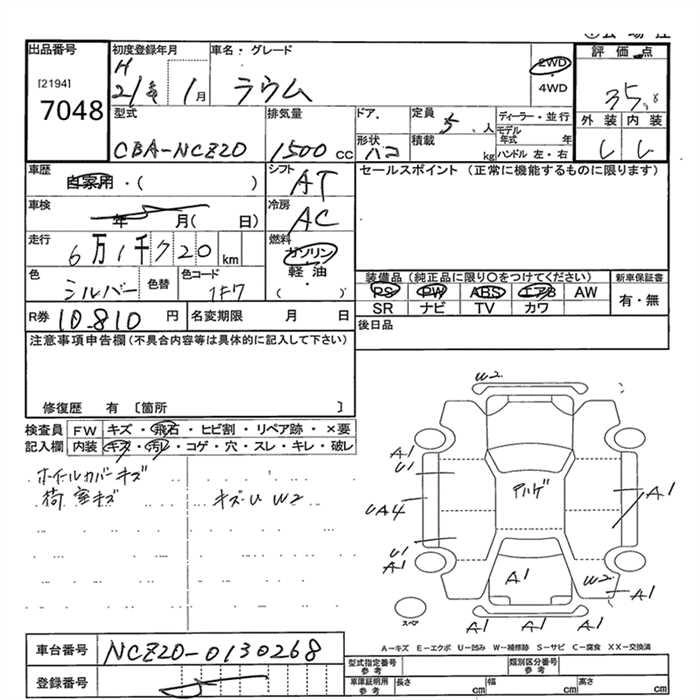 出品番号
[2194]
7048
初度登録年月
H
21年 1月
車名・グレード
ラウム
2WD
4WD
評価点
35
外装 内装
型式
CBA-NCZ20
排気量
1500cc
ドア
形状
ハコ
定員
5人
積載
kg
ディーラー・並行
モデル年式 年
ハンドル 左・右
車歴
自家用・( )
シフト
AT
セールスポイント (正常に機能するものに限ります)
車検
年 月( 日)
冷房
AC
走行
6万1千720km
燃料
ガソリン
軽油
( ・ )
色
シルバー
色替
色コード
1F7
装備品 (純正品に限り○をつけてください)
新車保証書
PS PW ABS エアB AW
有・無
SR ナビ TV カワ
R券 10.810円
名変期限 月 日
後日品
注意事項申告欄(不具合内容等は具体的に記入して下さい)
修復歴 有 〔箇所 〕
検査員記入欄
FW キズ・飛石・ヒビ割・リペア跡・×要
内装 キズ・汚レ・コゲ・穴・スレ・キレ・破レ
ホイールカバーキズ
荷室キズ
キズ・U W2
W2
A1
U1
UA4
U1
A1
A1
A1
W2
A1
A1
A1
A1
スペア
A－キズ E－エクボ U－凹み W－補修跡 S－サビ C－腐食 XX－交換済
車台番号
NCZ20-0130268
登録番号
型式指定番号 参考
類別区分番号 参考
車庫証明用 参考
長さ cm 幅 cm 高さ cm